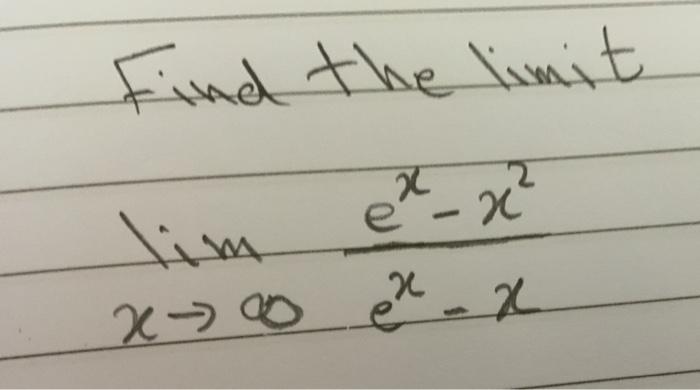 Find the limit
lim x→∞ (e^x - x^2)/(e^x - x)